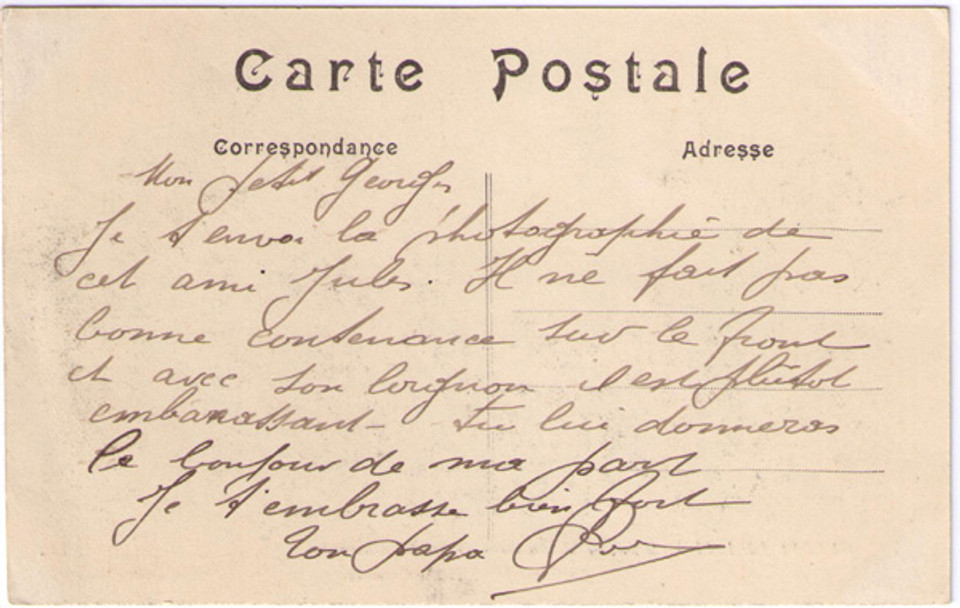 Carte Postale
Correspondance
Adresse
Mon petit Georges
Je t'envoi la photographie de
cet ami Jules. Il ne fait pas
bonne contenance sur le front
et avec son lorgnon il est plûtot
embarassant - tu lui donneras
le bonjour de ma part
Je t'embrasse bien fort
Ton papa